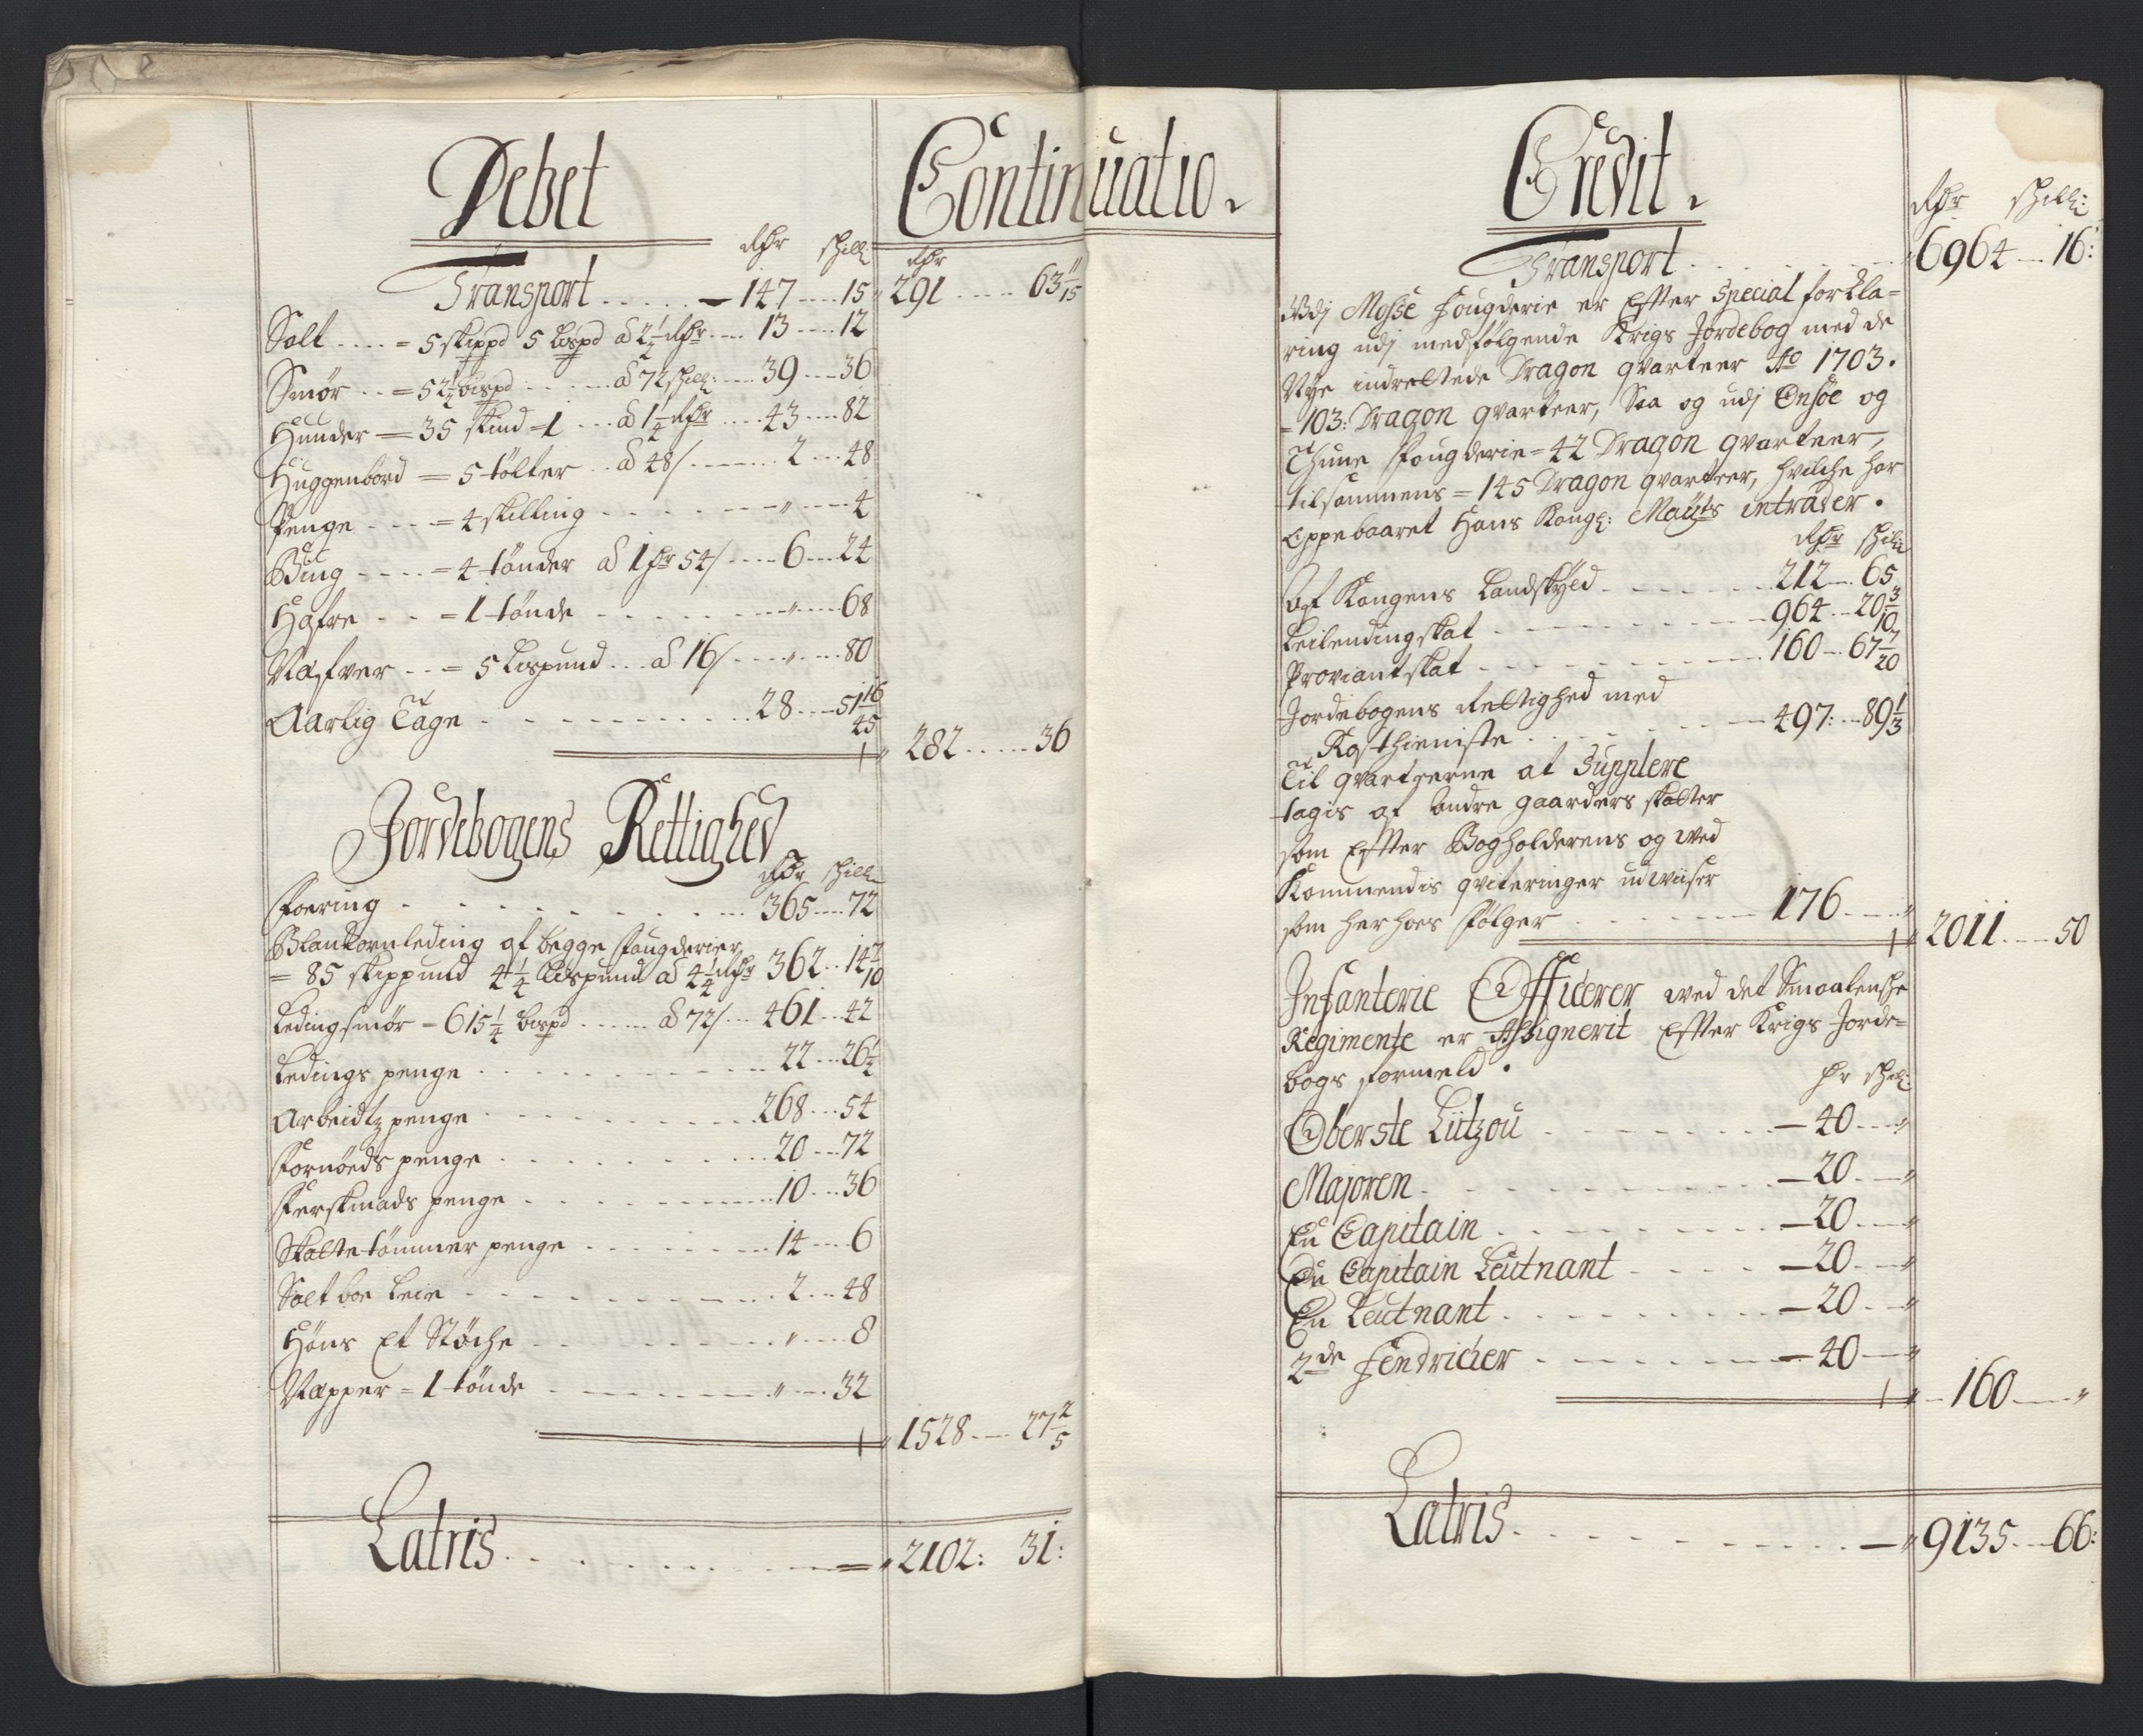 Debet Continuatio.
Rdr schill: Rdr
Transport ..... 147 ... 15 291 ..... 63 11/15
Salt .... = 5 skippd 5 lispd à 2 1/2 Rdr ... 13 ... 12
Smør ... = 52 1/2 bispd ..... à 72 schill: ... 39 ... 36
Hunder = 35 skind = 1 ... à 1 1/4 Rdr ... 43 ... 82
Huggenbord = 5 tólter .. à 48/ ...... 2 ... 48
Penge .... = 4 skilling ........ " ... 4
Bÿg .... = 4 tónder à 1 dr 54/ ... 6 ... 24
Hafre ... = 1 tónde ........ " ... 68
Næfver ... = 5 lispund ... à 16/ ... " ... 80
Aarlig Tage .......... 28 ... 51 16/45
282 ..... 36
Jordebogens Rettighed
Rdr schill:
Foering .......... 365 ... 72
Blankornleding af begge Fougderier
= 85 skippund 4 1/4 lispund à 4 1/4 Rdr 362 .. 14 7/10
Ledingsmør = 615 1/4 bispd ..... à 72/ ... 461 .. 42
Ledings penge .......... 22 ... 26 1/2
Arbeidtz penge .......... 268 ... 54
Fornóeds penge .......... 20 ... 72
Ferskmads penge .......... 10 ... 36
Skattetómmer penge ........ 14 ... 6
Salt boe leie .......... 2 ... 48
Høns et Støche .......... " ... 8
Næpper = 1 tónde .......... " ... 32
1528 ... 27 2/5
Latris .......... 2102: 31:
Credit.
Rdr schill:
Transport ........ 6964 ... 16:
Udj Mosse Fougderie er Efter Special forkla=
ring udj medfølgende Krigs Jordebog med de
Nye indrettede Dragon qvarteer Ao 1703.
= 103: Dragon qvarteer, Saa og udj Onsøe og
Thune Fougderie = 42 Dragon qvarteer,
tilsammens = 145 Dragon qvarteer, hvilche har
Oppebaaret Hans Kongl: Maÿts intrader.
Rdr schill
Af Kongens Landskÿld ....... 212 ... 65
Leilendingskat .......... 964 ... 20 3/10
Proviantskat .......... 160 ... 67 7/20
Jordebogens Rettighed med
Kosthieniste ........ 497: ... 89 1/3
Til qvarteerne at Supplere
tagis af andre gaarders skatter
som Efter Bogholderens og wed
Kommendis qviteringer udwiiser
som her hoes følger ....... 176 ... "
2011 ... 50
Infanterie Officerer wed det Smaalenske
Regimente er Assignerit Efter Krigs Jorde=
bogs formeld.
dr schil:
Oberste Lützou ........ 40 ... "
Majoren .......... 20 ... "
En Capitain ........ 20 ... "
En Capitain Leutnant .... 20 ... "
En Leutnant ........ 20 ... "
2de Fendricher ....... 40 ... "
160 ... "
Latris .......... 9135 ... 66: